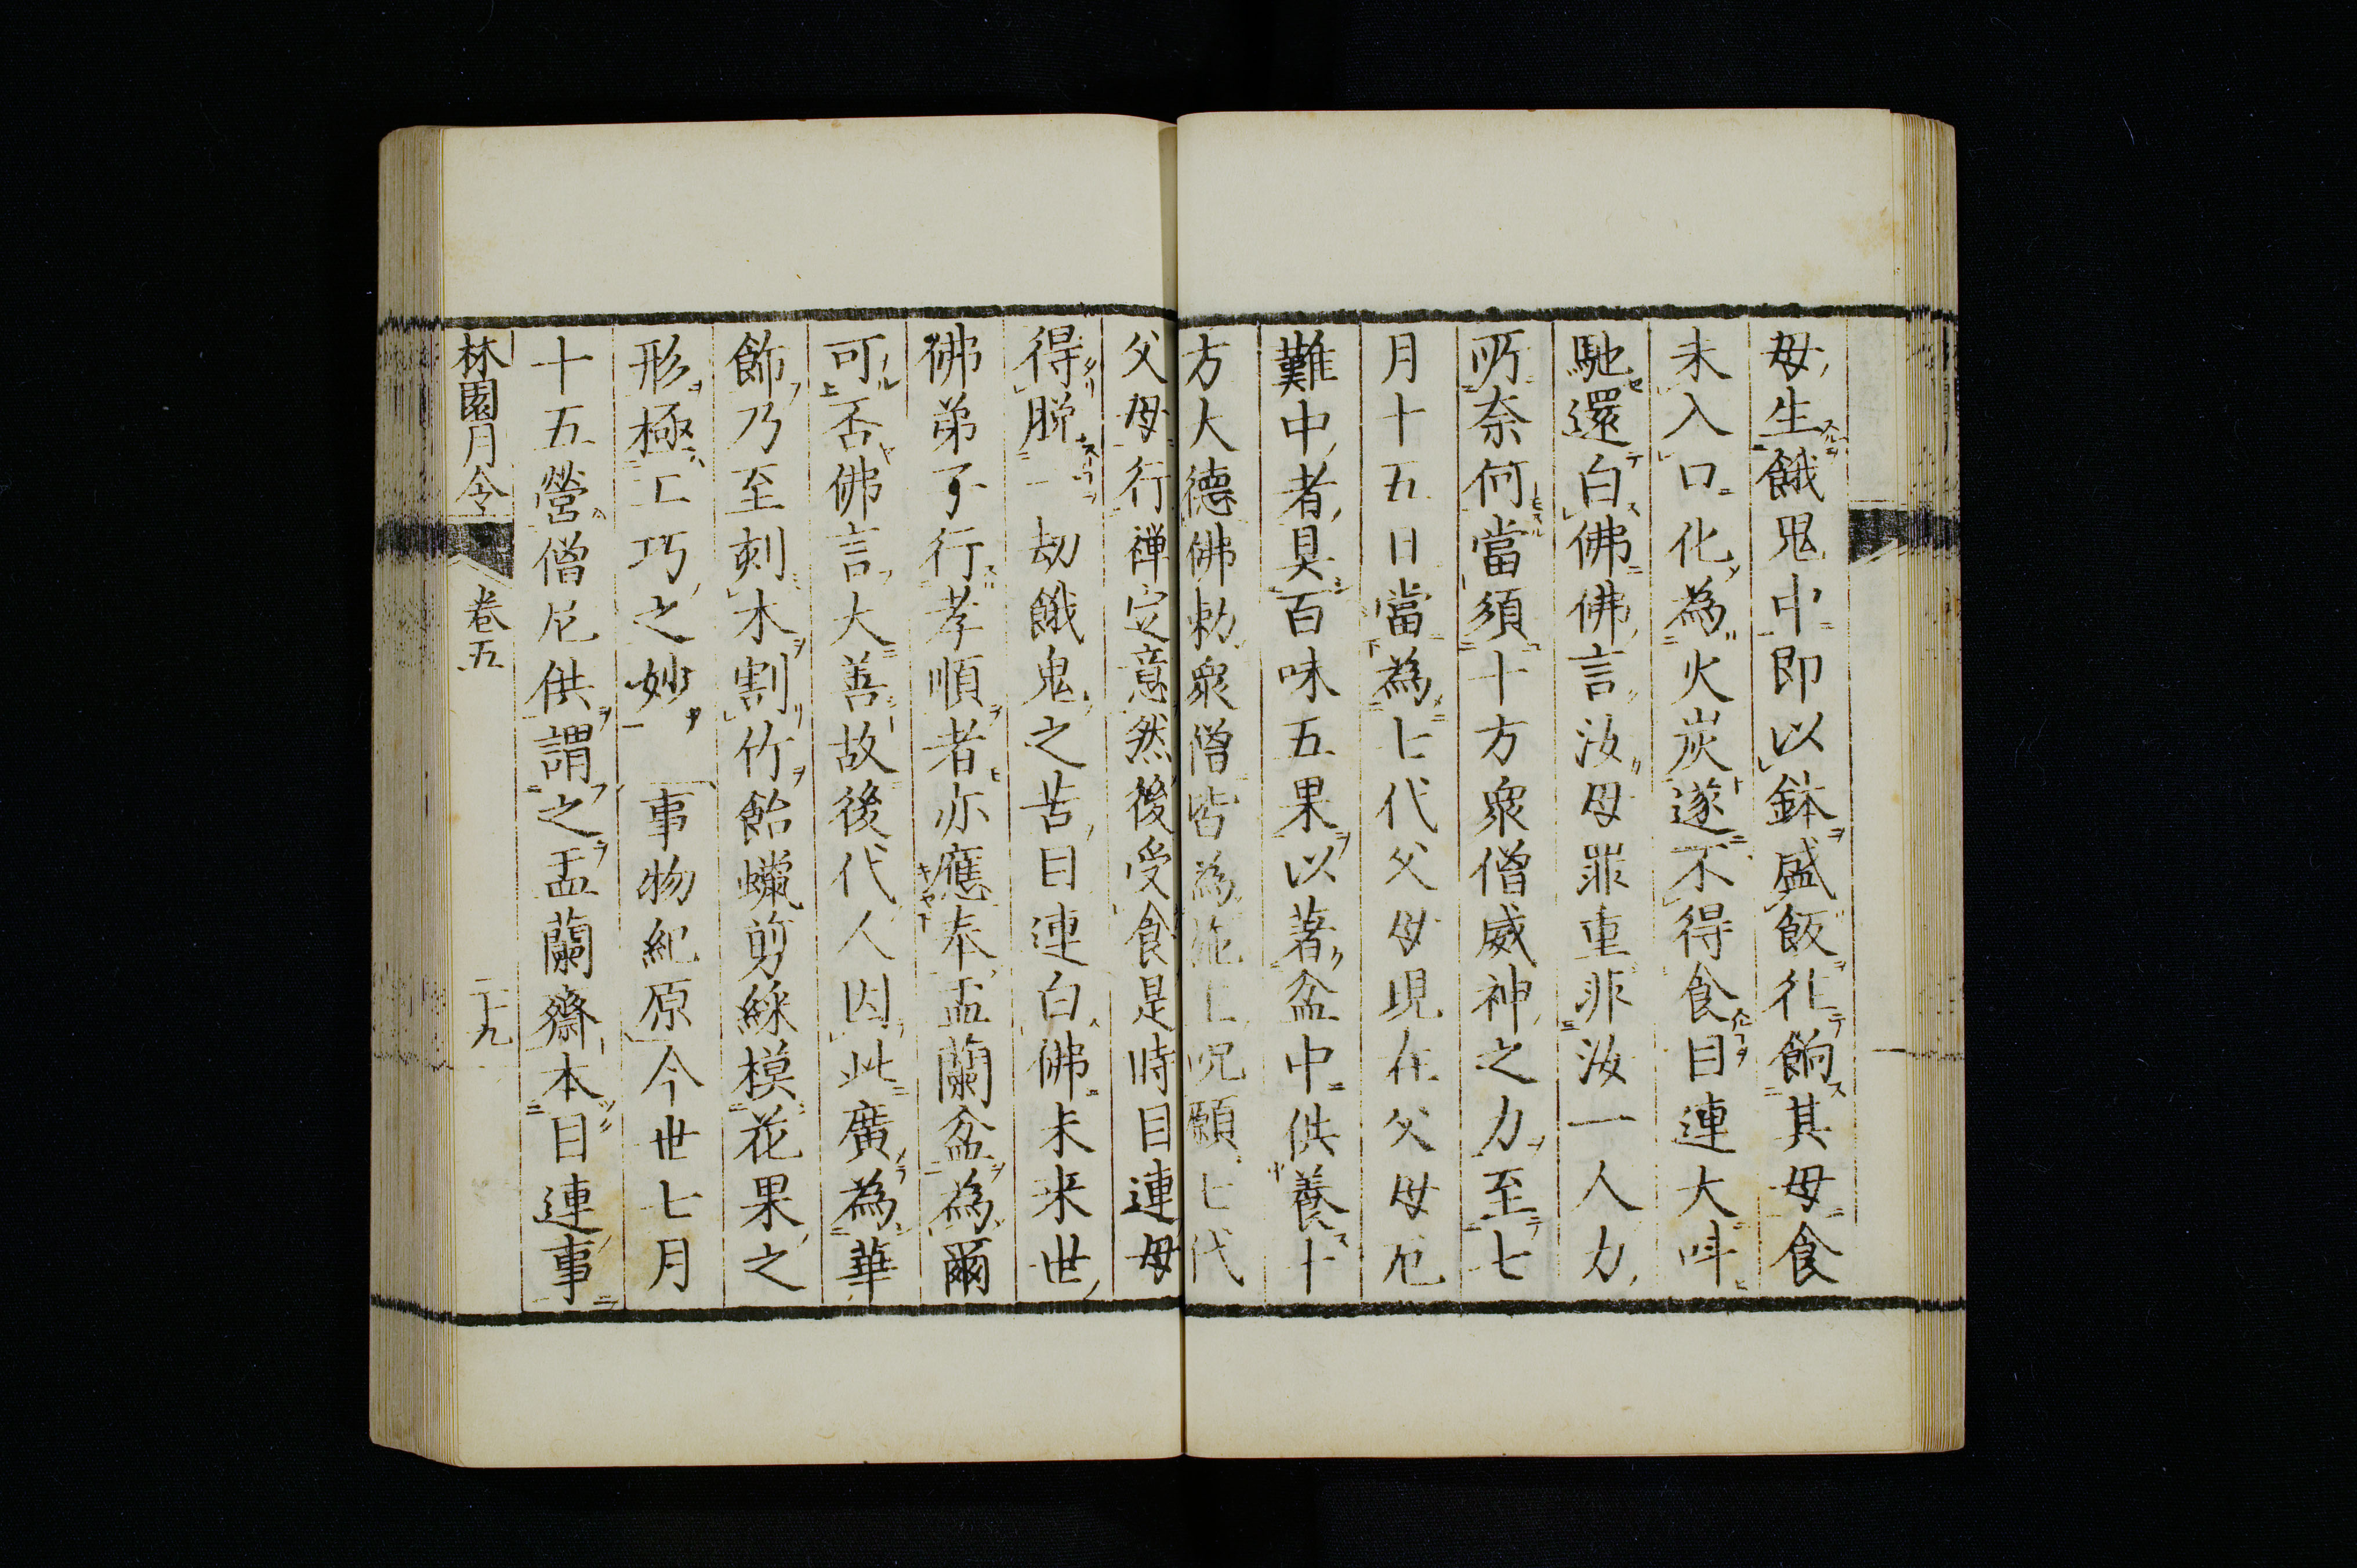 母生餓鬼中即以鉢盛飯往餉其母食
未入口化為火炭遂不得食目連大呌
馳還白佛佛言汝母罪重非汝一人力
所奈何當須十方衆僧威神之力至七
月十五日當為七代父母現在父母厄
難中者具百味五果以著盆中供養十
方大德佛勅衆僧皆為施主呪願七代
父母行禅定意然後受食是時目連母
得脱一劫餓鬼之苦目連白佛未来世
佛弟子行孝順者亦應奉盂蘭盆為爾
可否佛言大善故後代人因此廣為華
飾乃至刻木割竹飴蠟剪綵模花果之
形極工巧之妙 事物紀原今世七月
十五營僧尼供謂之盂蘭齋本目連事
林園月令 卷五 二十九